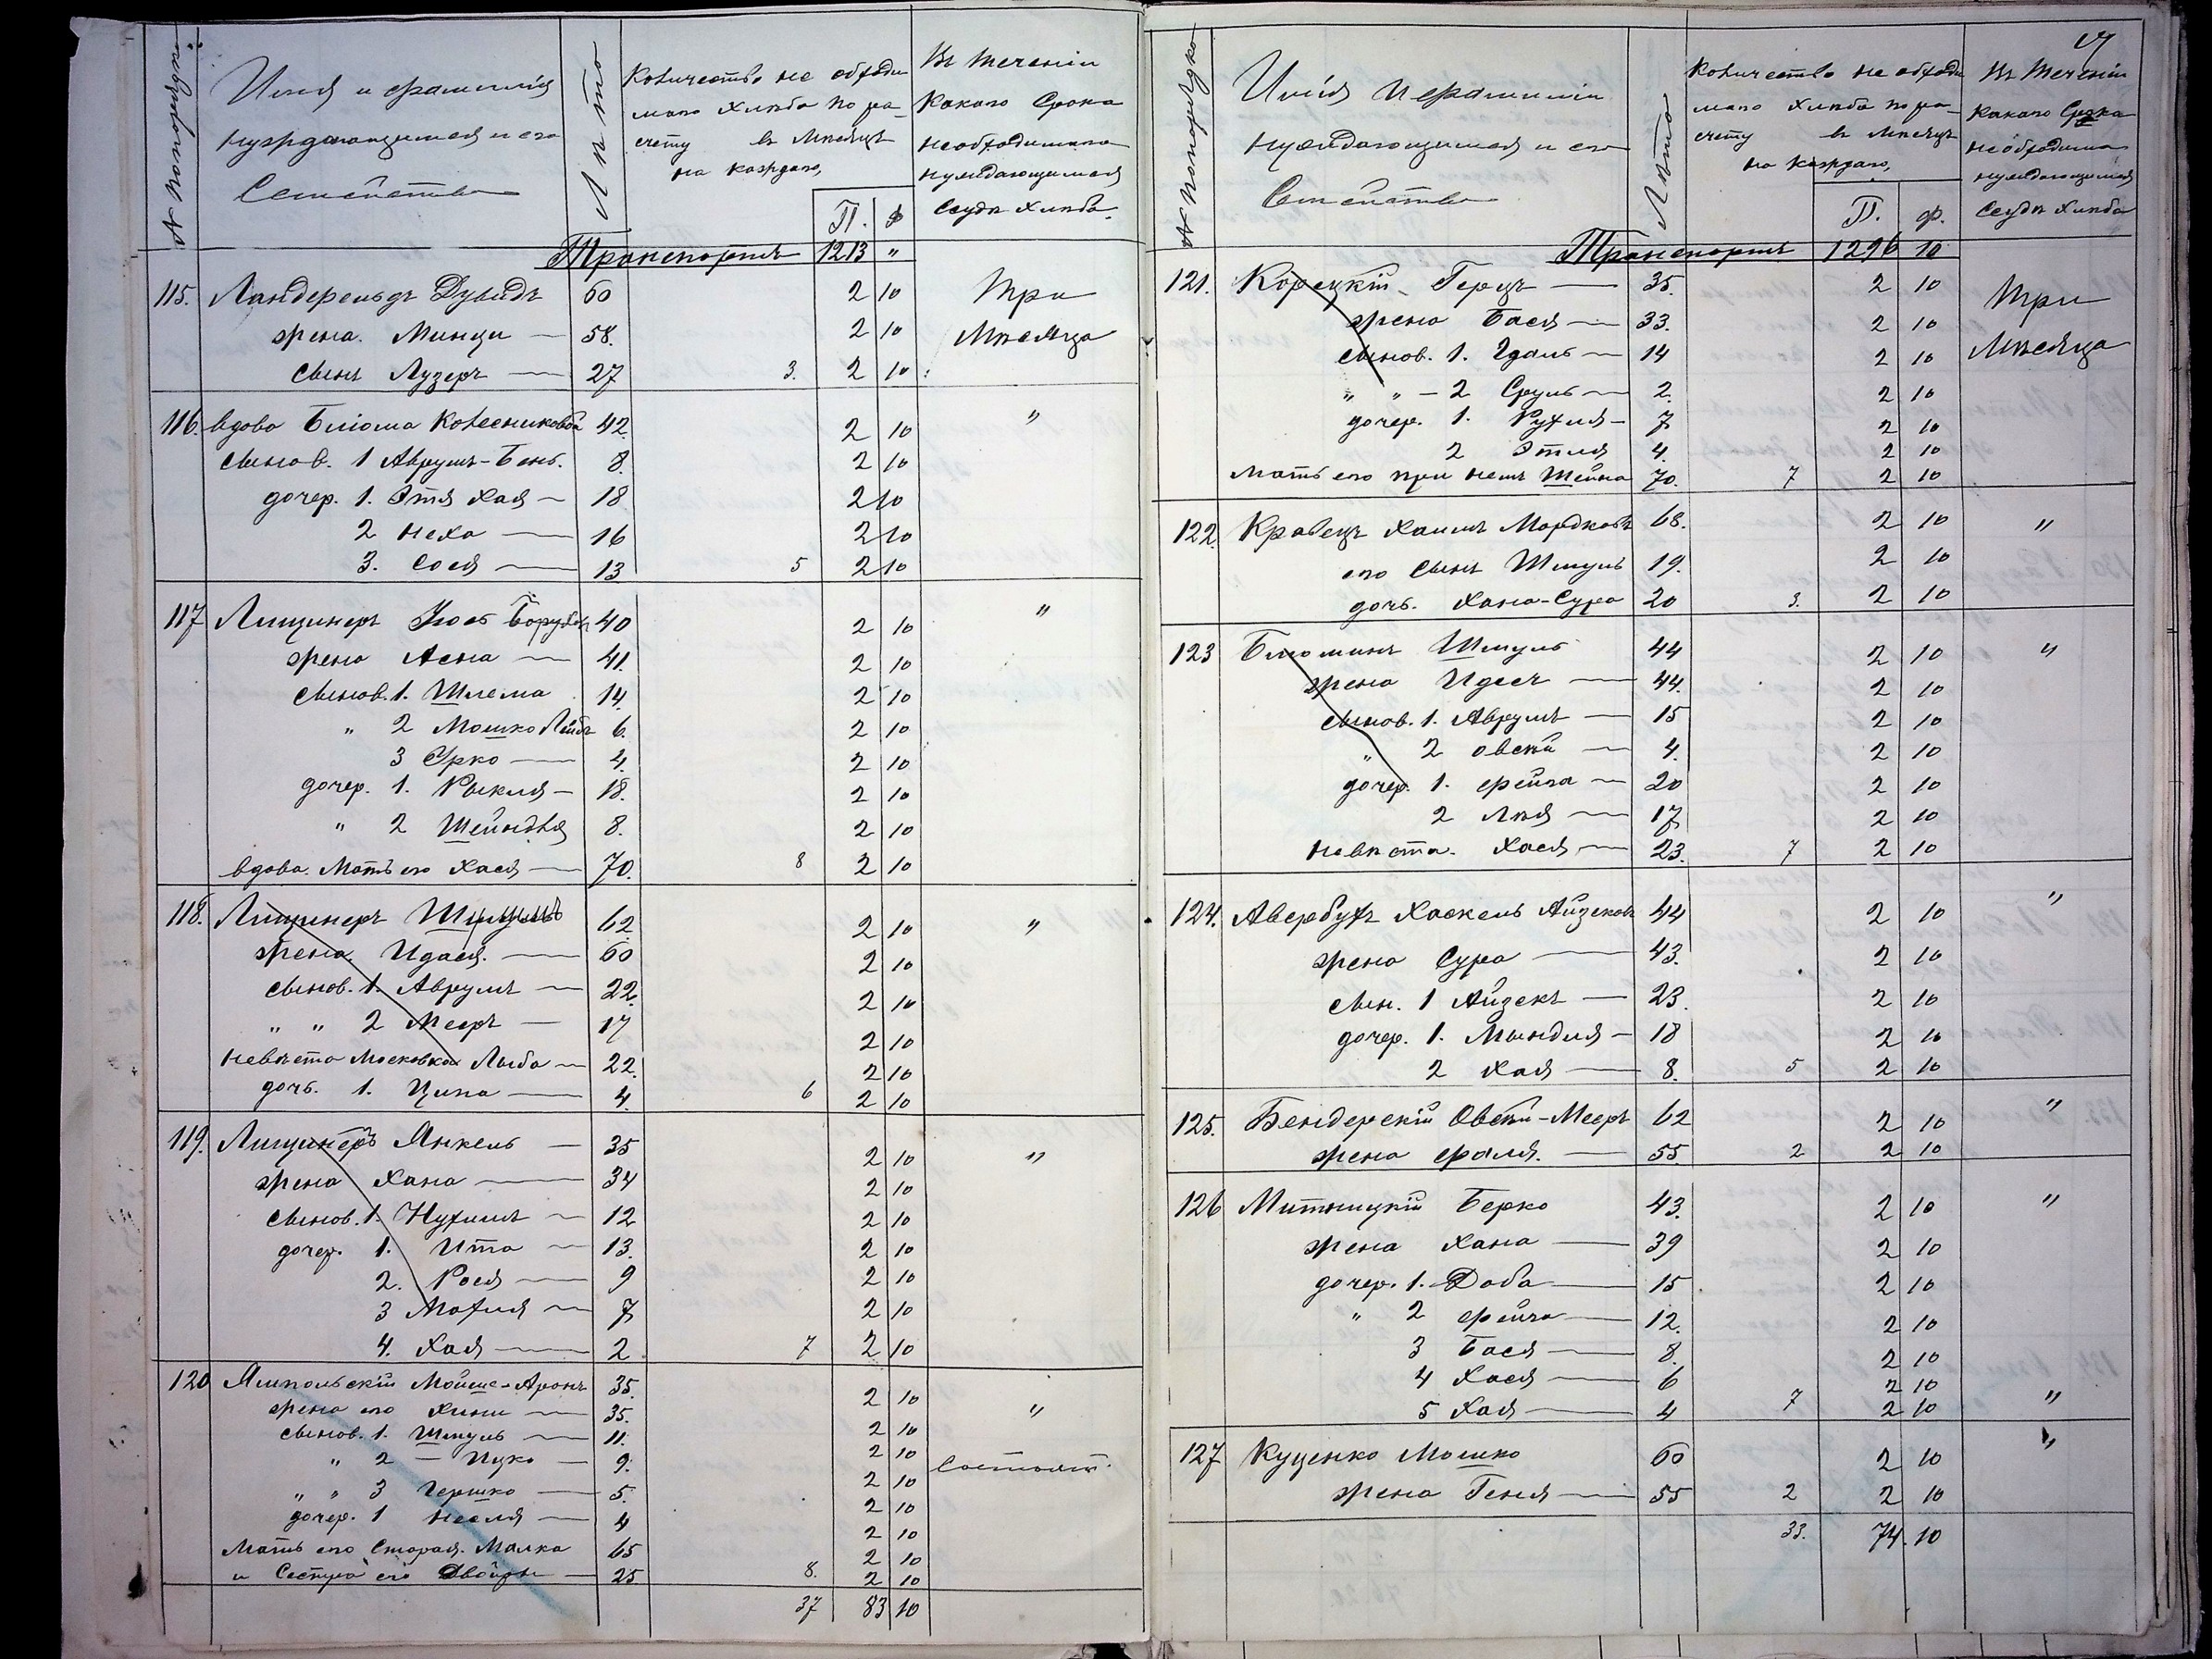 № по порядку
Имя и фамилія
нуждающимся и его
Семейства
Лѣта
Количество не обходи
маго хлѣба по ра-
счету въ мѣсяцъ
на каждаго,
П. Ф
Въ теченіи
какого Срока
необходимаго
нуждающимся
Ссуда хлѣба.
Транспортъ 1213 "
115. Ландерельдъ Дувидъ 60 2 10 Три
жена. Минци — 58. 2 10 Мѣсяца
сынъ Лузеръ — 27 3. 2 10
116. вдова Блюма Колесникова 42. 2 10 "
сынов. 1 Аврумъ-Бень. 8. 2 10
дочер. 1. Этя Хая — 18 2 10
2 Неха — 16 2 10
3. Сося — 13 5 2 10
117 Лищинеръ Іось Борухов 40 2 10 "
жена Асна — 41. 2 10
сынов. 1. Шлема 14. 2 10
" 2 Мошко Лейбъ 6. 2 10
3 Срко — 4. 2 10
дочер. 1. Рыкля — 18. 2 10
" 2 Шейндля 8. 2 10
вдова. Мать его Хася — 70. 8 2 10
118. Лищинеръ Шмуль 62 2 10 "
жена. Идася. — 60 2 10
сынов. 1. Аврумъ — 22. 2 10
" " 2 Мееръ — 17 2 10
невѣста Московка Лыба — 22. 2 10
дочь. 1. Ципа — 4. 6 2 10
119. Лищинеръ Янкель — 35 2 10 "
жена Хана — 34 2 10
сынов. 1. Нухимъ — 12 2 10
дочер. 1. Ита — 13. 2 10
2. Рося — 9 2 10
3 Махля — 7 2 10
4. Хая — 2 7 2 10
120 Ямпольскій Мойше-Аронъ 35. 2 10 "
жена его Хини — 35. 2 10
сынов. 1. Шмуль — 11. 2 10
" 2 — Ицко — 9. 2 10 Состоят.
" " 3 Гершко — 5. 2 10
дочер. 1 Несля — 4 2 10
Мать его Старая. Малка 65 2 10
и Сестра его Двойра — 25 8. 2 10
37 83 10
№ по порядку
Имя и фамиліи
нуждающимся и его
Семейства
Лѣта
Количество не обходи
маго хлѣба по ра-
счету въ мѣсяцъ
на каждаго,
П. Ф.
Въ теченіи
какого Срока
необходима
нуждающимся
Ссуда хлѣба
Транспортъ 1296 10
121. Корецкій — Герцъ — 35. 2 10 Три
жена Бася — 33. 2 10 Мѣсяца
сынов. 1. Гдаль — 14 2 10
" " — 2 Сруль — 2. 2 10
дочер. 1. Рухля — 7 2 10
2 Этля 4. 2 10
Мать его при немъ Шейна 70. 7 2 10
122. Кравецъ Хаимъ Мордковъ 68. 2 10 "
его сынъ Шмуль 19. 2 10
дочь. Хана-Сура 20 3. 2 10
123 Блюминъ Шмуль 44 2 10 "
жена Идесъ — 44. 2 10
сынов. 1. Аврумъ — 15 2 10
" 2 Овсѣй — 4. 2 10
дочер. 1. Фейга — 20 2 10
2 Лѣя — 17 2 10
невѣста. Хася — 23. 7 2 10
124. Авербухъ Хаскель Айзековъ 44 2 10 "
жена Сура — 43. 2 10
сын. 1 Айзекъ — 23. 2 10
дочер. 1. Мындля — 18 2 10
2 Хая — 8. 5 2 10
125. Бендерскій Овсѣй-Мееръ 62 2 10 "
жена Фраля. — 55. 2 2 10
126 Митницкій Берко 43. 2 10 "
жена Хана — 39 2 10
дочер. 1. Доба — 15 2 10
" 2 Фейга — 12. 2 10
3 Бася — 8. 2 10
4 Хася — 6 2 10
5 Хая — 4 7 2 10 "
127 Куценко Мошко 60 2 10 "
жена Геня — 55 2 2 10
33. 74. 10